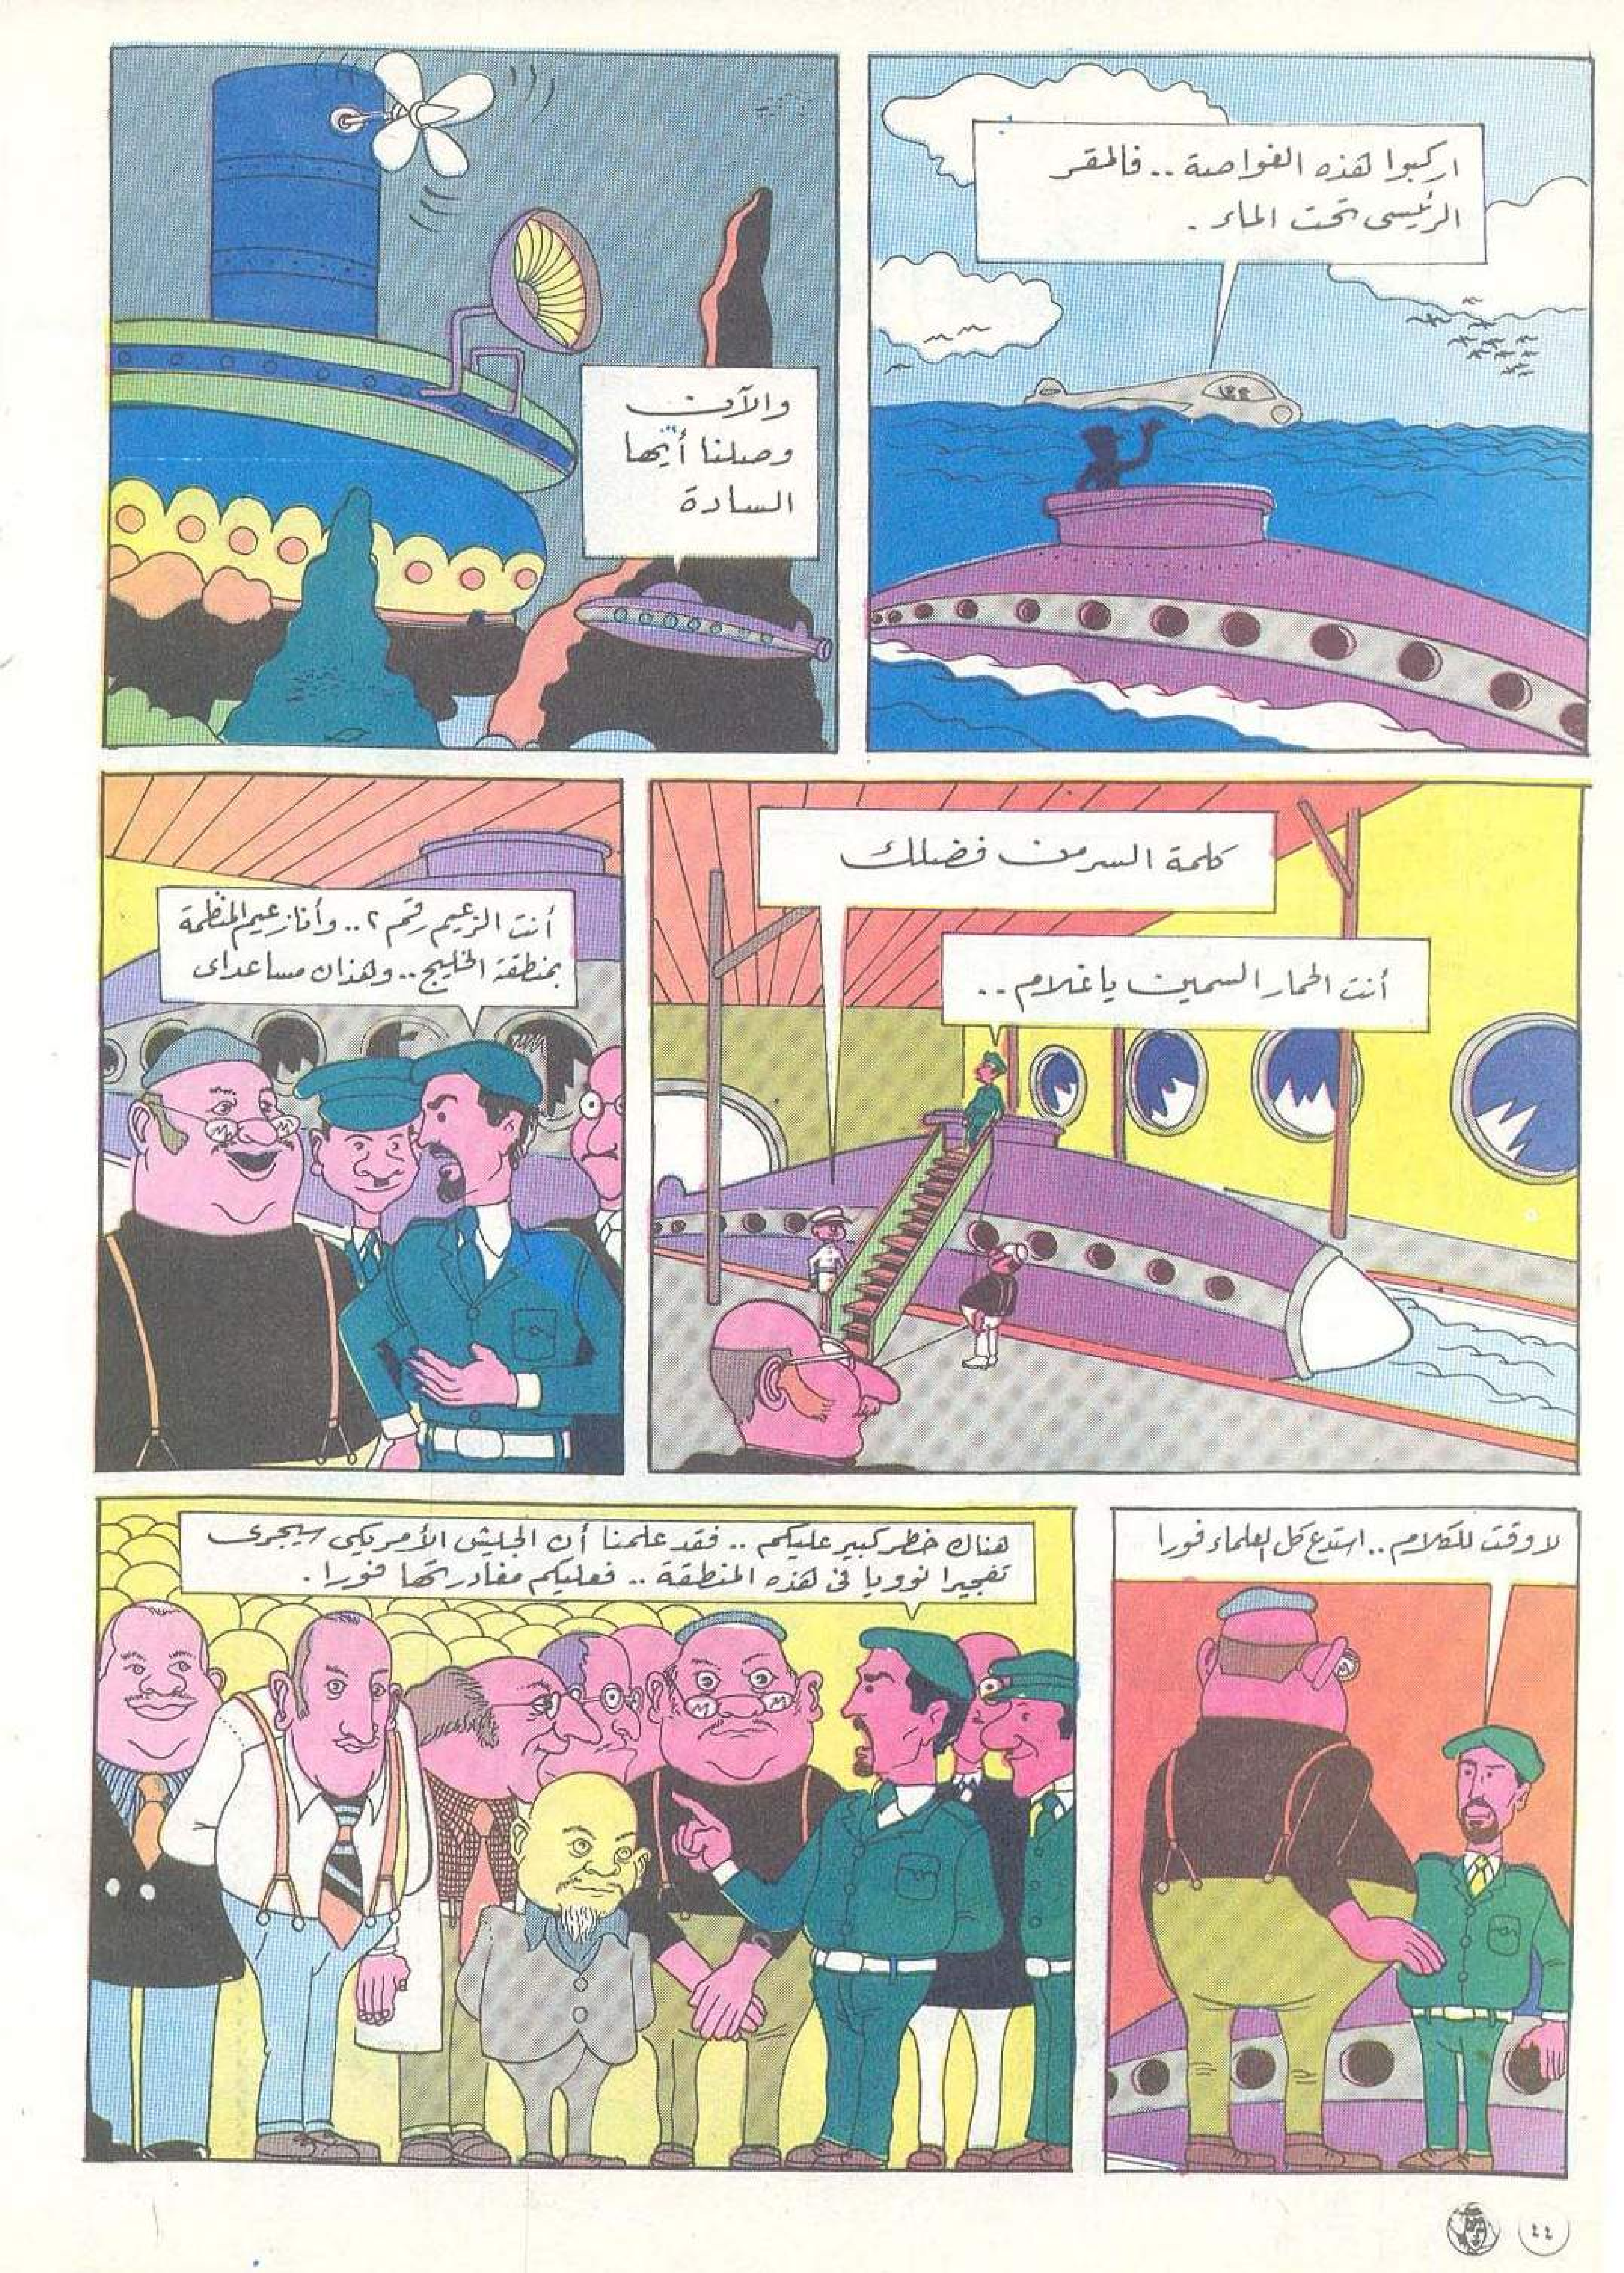 اركبوا هذه الغواصة .. فالمقر
الرئيسى تحت الماء .
والآن
وصلنا أيها
السادة
كلمة السر من فضلك
أنت الحمار السمين يا غلام ..
أنت الزعيم رقم ٢ .. وأنا زعيم المنظمة
بمنطقة الخليج .. وهذان مساعداى
لا وقت للكلام .. استدع كل العلماء فورا
هناك خطر كبير عليكم .. فقد علمنا أن الجيش الأمريكى سيجرى
تفجيرا نوويا فى هذه المنطقة .. فعليكم مغادرتها فورا .
٤٤